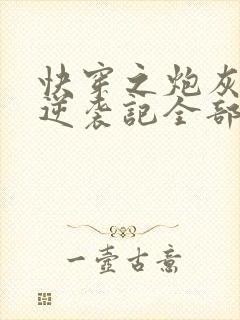 快穿之炮灰
逆袭記全部
一壺古意